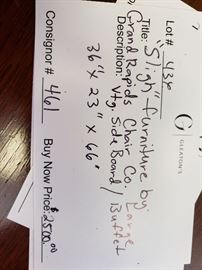 Lot# 436
G
GLEATON'S
Title: Large
"Sligh" Furniture by
Grand Rapids Chair Co.
Description: Vtg. Side Board/Buffet
36" X 23" X 66"
Consignor # 461
Buy Now Price: $2500.00